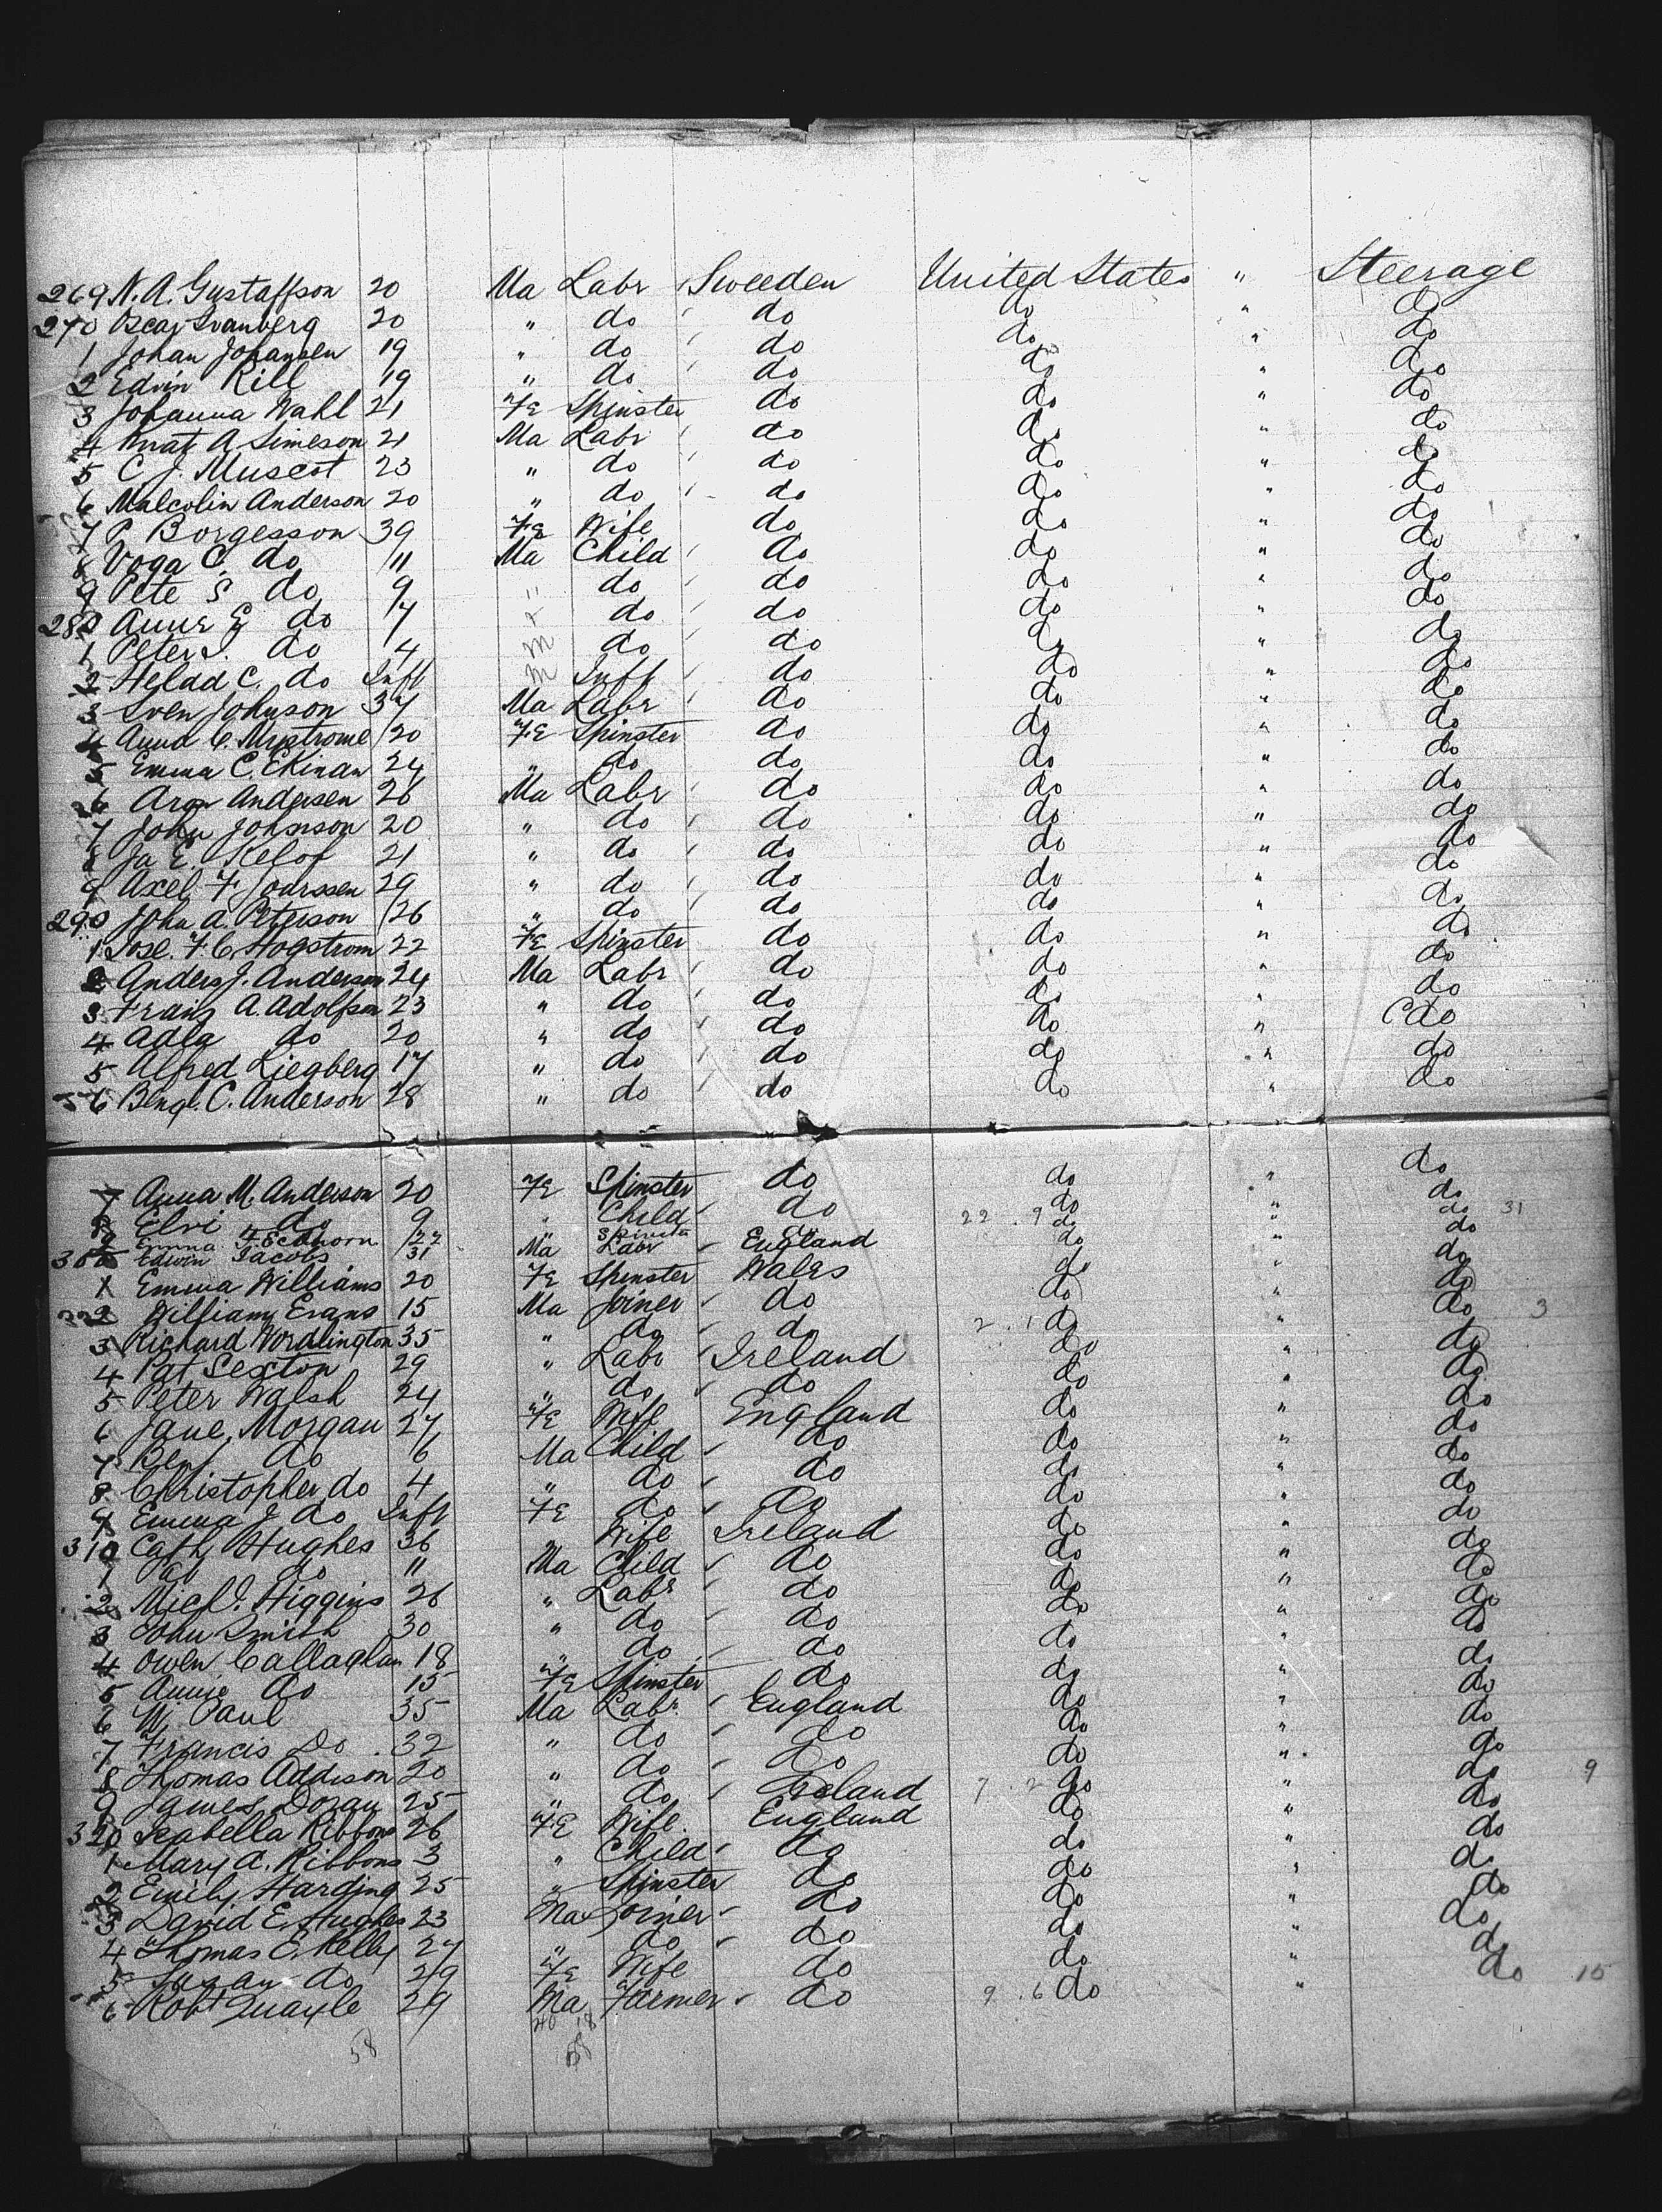 269 N. A. Gustaffson 20 Ma Labr Sweeden United States " Steerage
270 Oscar Svanberg 20 " do do do " do
1 Johan Johansen 19 " do do do " do
2 Edvin Rill 19 " do do do " do
3 Johanna Wahl 21 Fe Spinster do do " do
4 A Simeson 21 Ma Labr do do " do
5 C. J. Muscot 23 " do do do " do
6 Malcolin Anderson 20 " do do do " do
7 P Borgesson 39 Fe Wife do do " do
8 Voga C. do 11 Ma Child do do " do
9 Pete S do 9 " do do do " do
280 Anna E do 7 f do do do " do
1 Peter J. do 4 m do do do " do
2 Helad C. do Inft m Inft do do " do
3 Sven Johnson 37 Ma Labr do do " do
4 Anna C. 20 Fe Spinster do do " do
5 Emma C. Ekman 24 " do do do " do
6 Aron Andersen 26 Ma Labr do do " do
7 John Johnson 20 " do do do " do
8 Ja E. 21 " do do do " do
9 Axel F. 29 " do do do " do
290 John A. Peterson 26 " do do do " do
1 Jose. F. C. Hogstrom 22 Fe Spinster do do " do
2 Anders J. Anderson 24 Ma Labr do do " do
3 Franz A. Adolfson 23 " do do do " do
4 Adla do 20 " do do do " do
5 Alfred Liegberg 17 " do do do " do
6 Bengt. C. Anderson 28 " do do do " do
7 Anna M. Anderson 20 Fe Spinster do do " do
8 Elvi do 9 " Child do 22 . 9 do " do
9 Emma F. Eckhorn 27 " Spinster do do " do 31
300 Edwin Jacobs 31 Ma Labr England do " do
1 Emma Williams 20 Fe Spinster Wales do " do
2 William Evans 15 Ma Joiner do do " do
3 Richard Wordlington 35 " do do 2 . 1 do " do 3
4 Pat Sexton 29 " Labr Ireland do " do
5 Peter Walsh 24 " do do do " do
6 Jane Morgan 27 Fe Wife England do " do
7 Benj do 6 Ma Child do do " do
8 Christopher do 4 " do do do " do
9 Emma J do Inft Fe do do do " do
310 Cath Hughes 36 " Wife Ireland do " do
1 Pat do 11 Ma Child do do " do
2 Michl. Higgins 26 " Labr do do " do
3 John Smith 30 " do do do " do
4 Owen Callaghan 18 " do do do " do
5 Annie do 15 Fe Spinster do do " do
6 W. Paul 35 Ma Labr England do " do
7 Francis Do 32 " do do do " do
8 Thomas Addison 20 " do do do " do
9 James Doran 25 " do Ireland 7 . 2 do " do 9
320 Isabella Ribbons 26 Fe Wife England do " do
1 Mary A. Ribbons 3 " Child do do " do
2 Emily Harding 25 " Spinster do do " do
3 David E. Hughes 23 Ma Joiner do do " do
4 Thomas E. Kelly 27 " do do do " do
5 Susan do 29 Fe Wife do do " do
6 Robt Quayle 29 Ma Farmer do 9 . 6 do " do 15
40 18
58 58